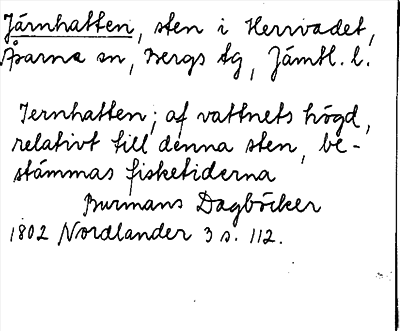 Järnhatten, sten i Herrvadet,
Åsarne sn, Bergs tg, Jämtl. l.
Jernhatten; af vattnets högd,
relativt till denna sten, be-
stämmas fisketiderna
Burmans Dagböcker
1802 Nordlander 3 s. 112.